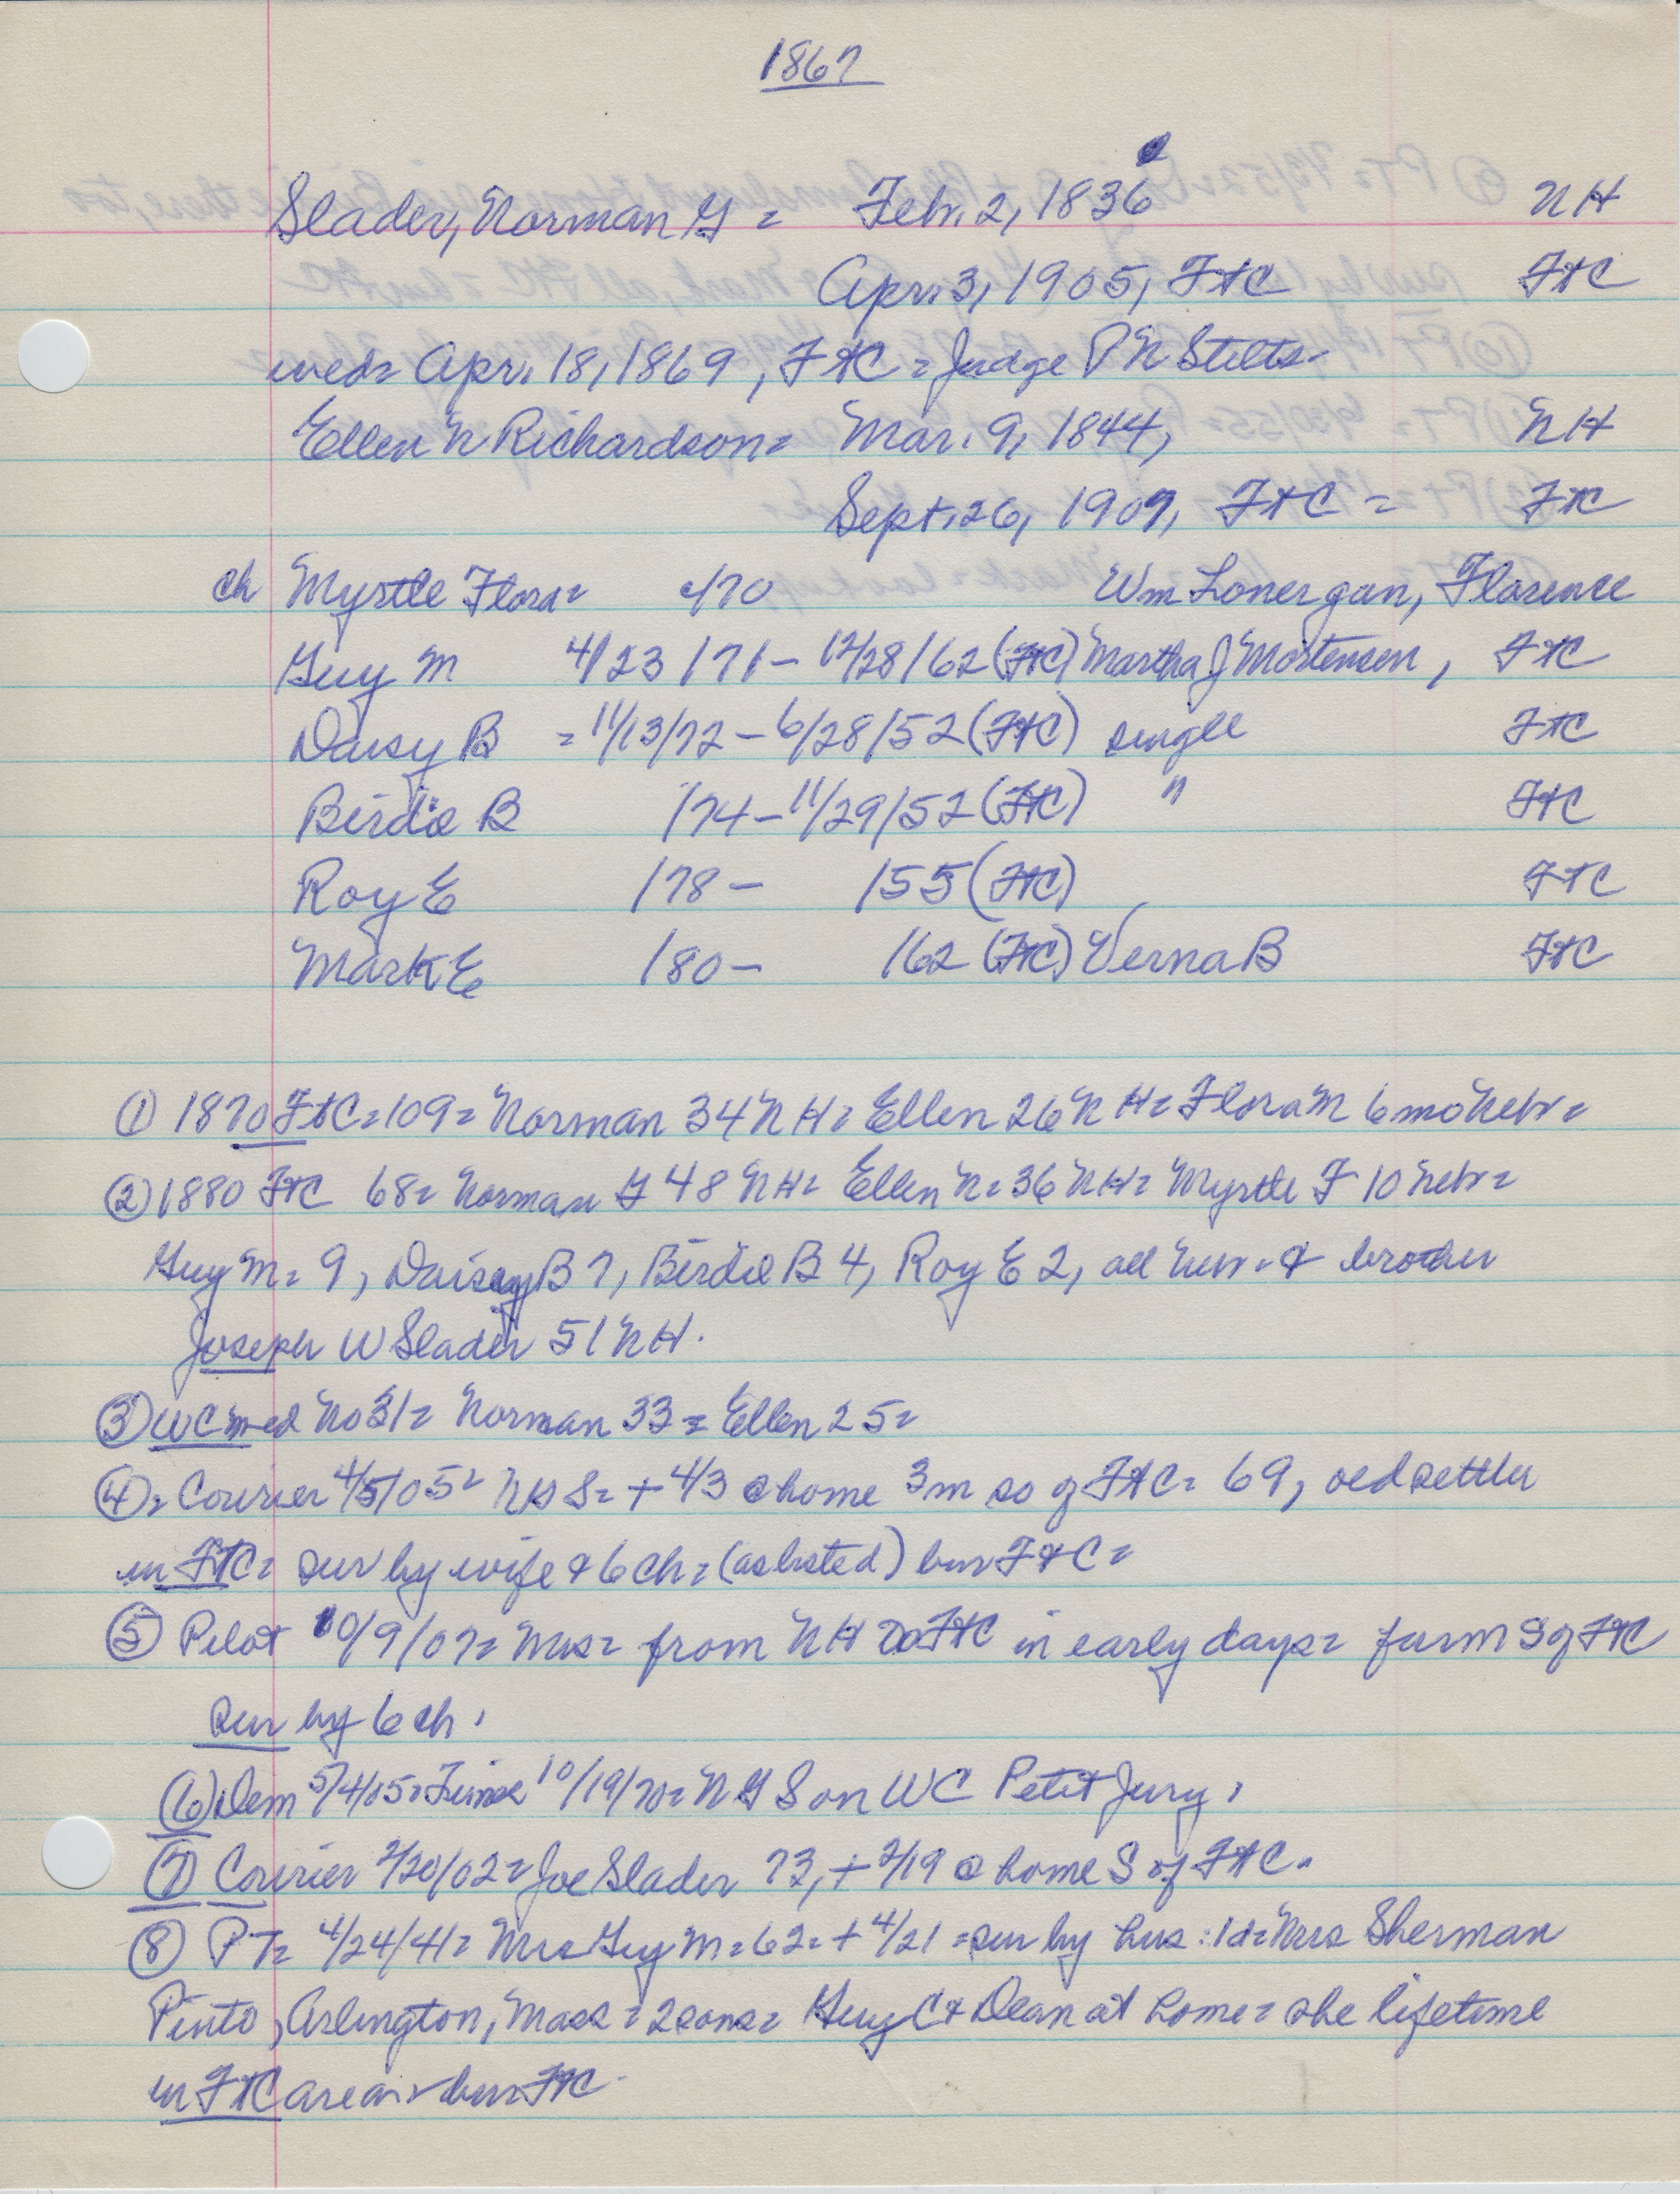 1867
Slader, Norman G = Feb. 2, 1836 NH
Apr. 3, 1905, FtC FtC
wed= Apr. 18, 1869, FtC = Judge P N Stilts-
Ellen N Richardson= Mar. 9, 1844, NH
Sept. 26, 1907, FtC = FtC
ch Myrtle Flora= c/70 Wm Lonergan, Florence
Guy M 4/23/71- 12/28/62 (FtC) Martha J Mortensen, FtC
Daisy B = 11/13/72 - 6/28/52 (FtC) single FtC
Birdie B /74 - 11/29/52 (FtC) " FtC
Roy E /78 - /55 (FtC) FtC
Mark E /80 - /62 (FtC) Verna B FtC
① 1870 FtC=109= Norman 34 NH= Ellen 26 NH= Flora M 6 mo Nebr=
② 1880 FtC 68= Norman G 48 NH= Ellen N= 36 NH= Myrtle F 10 Nebr=
Guy M= 9, Daisy B 7, Birdie B 4, Roy E 2, all Nebr. & brother
Joseph W Slader 51 NH.
③ WC med No 31= Norman 33= Ellen 25=
④= Courier 4/5/05= NGS= + 4/3 @ home 3 m so of FtC= 69, old settler
in FtC= sur by wife & 6 ch= (as listed) bur FtC=
⑤ Pilot 10/9/07= Mrs= from NH to FtC in early days= farm S of FtC
sur by 6 ch.
⑥ Dem 5/4/05= Times 10/19/70= N G S on WC Petit Jury.
⑦ Courier 2/20/02= Joe Slader 73, + 2/19 @ home S of FtC.
⑧ PT= 4/24/41= Mrs Guy M= 62= + 4/21 = sur by hus: 1d= Mrs Sherman
Pinto, Arlington, Mass= 2 sons= Guy C & Dean at home= she lifetime
in FtC area= bur FtC.